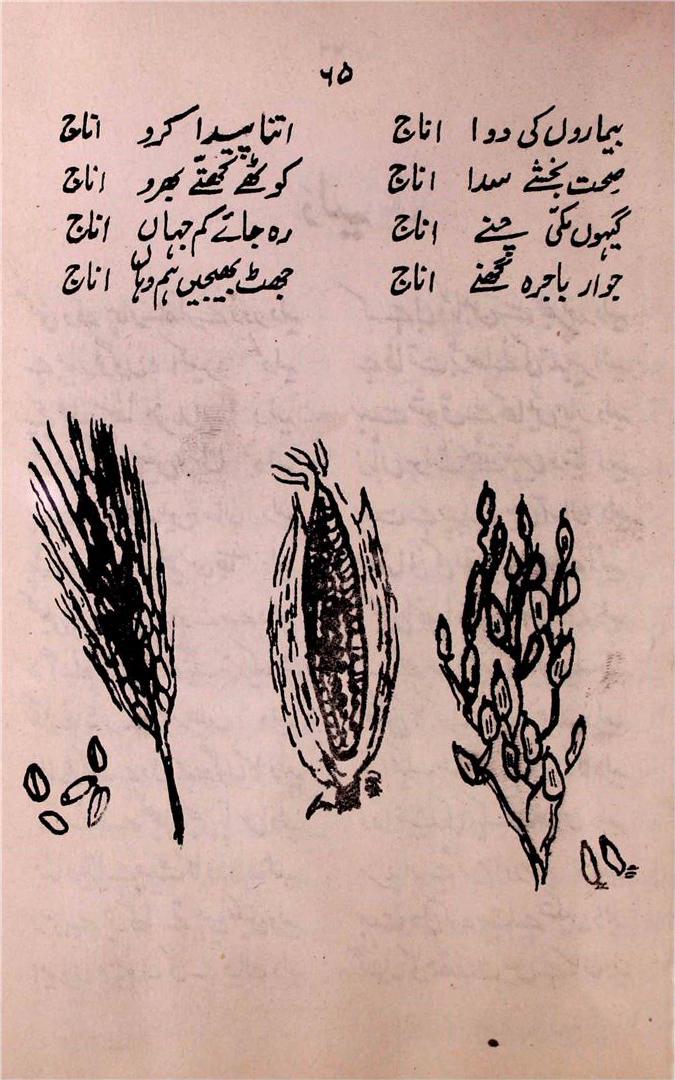 ۶۵
بیماروں کی دوا اناج اتنا پیدا کرو اناج
صحت بخشے سدا اناج کوٹھے کھتّے بھرو اناج
گیہوں مکّی چنے اناج رہ جائے کم جہاں اناج
جوار باجرہ گھنے اناج جھٹ بھیجیں ہم وہاں اناج